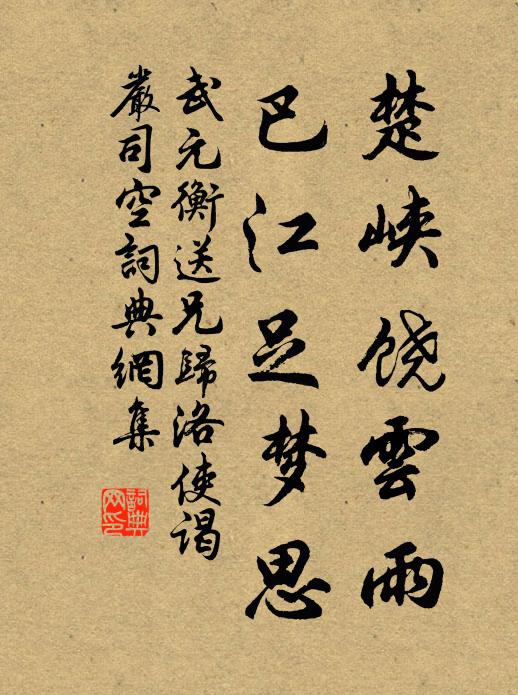 楚峡饶雲雨
巴江足梦思
武元衡送兄歸洛使谒
嚴司空詞典網集
詞典
网印